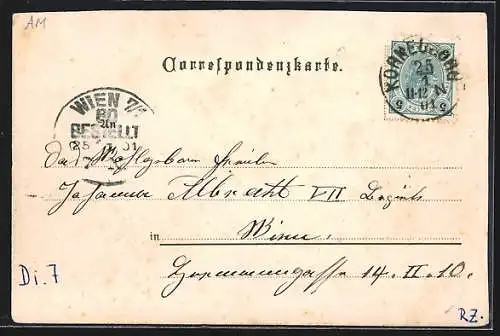 AM
Correspondenzkarte.
KORNEUBURG
25
1
11-12 N
01
5 5
WIEN 7/1
BESTELLT
25 1 01
Fräulein
Johanna Albrecht VII Bezirk
in Wien
Hermanngasse 14. II. 10.
Di. 7
RZ.